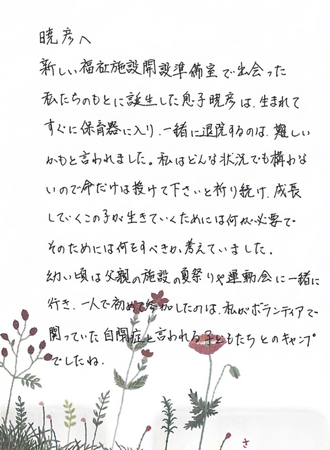 暁彦へ
新しい福祉施設開設準備室で出会った
私たちのもとに誕生した息子暁彦は、生まれて
すぐに保育器に入り、一緒に退院するのは、難しい
かもと言われました。私はどんな状況でも構わな
いので命だけは授けて下さいと祈り続け、成長
していくこの子が生きていくためには何が必要で
そのためには何をすべきか考えていました。
幼い頃は父親の施設の夏祭りや運動会に一緒に
行き、一人で初めて参加したのは、私がボランティアで
関っていた自閉症と言われる子どもたちとのキャンプ
でしたね。
さ